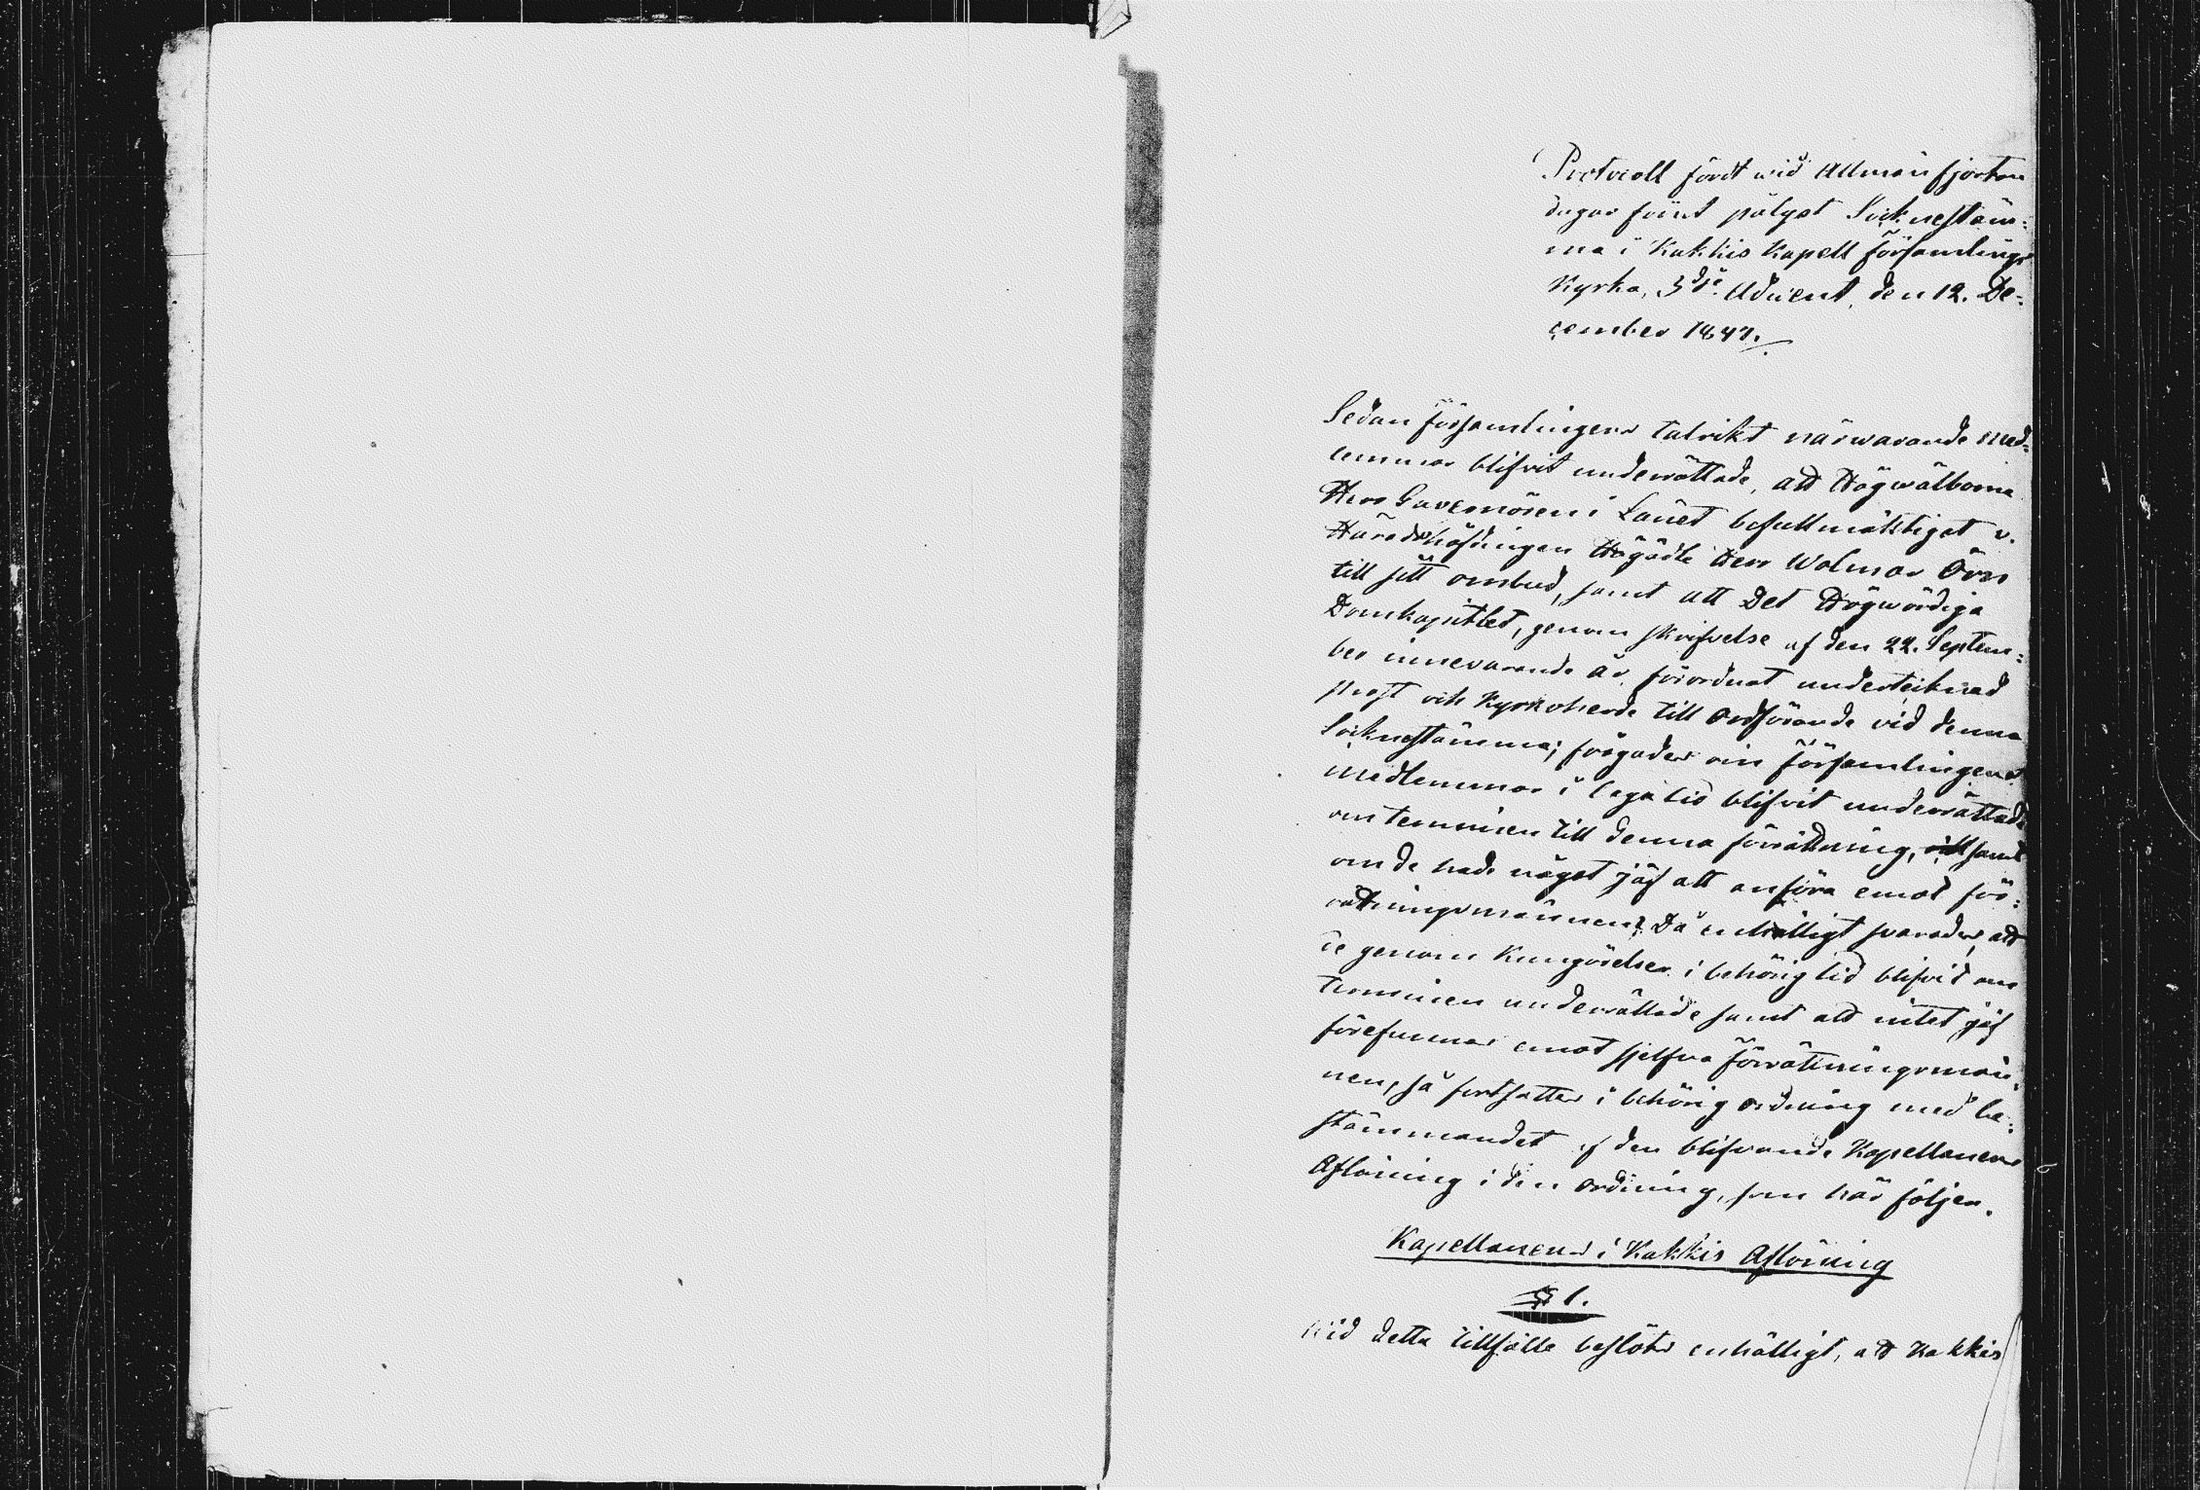 Protocoll fördt wid Allmän fjorton
dagar förut pålyst Socknestäm:
ma i Kakkis Kapell församlings
Kyrka, 3dje Advent, den 12. De:
cember 1847.
Sedan församlingens talrikt närwarande med:
lemmar blifvit underrättade, att Högwälborne
Herr Guvernören i Länet befullmäktigat v.
Häradshöfdingen Högädle Herr Wolmar Örn
till sitt ombud, samt att Det Högwördiga
Domkapitlet, genom skrifvelse af den 22. Septem:
ber innevarande år förordnat undertecknad
prost och Kyrkoherde till Ordförande vid denna
Socknestämma; frågades om församlingens
medlemmar i laga tid blifvit underrättade
om terminen till denna förrättning, samt
om de hade något jäf att anföra emot för:
rättningsmännen? Då enhälligt svarades, att
de genom Kungörelser i behörig tid blifvit om
terminen underrättade samt att intet jäf
förefunnes emot sjelfva förrättningsmän:
nen, så fortsattes i behörig ordning med be:
stämmandet af den blifvande Kapellanens
Aflöning i den ordning, som här följer.
Kapellanens i Kakkis Aflöning
§ 1.
Wid detta tillfälle beslöts enhälligt, att Kakkis